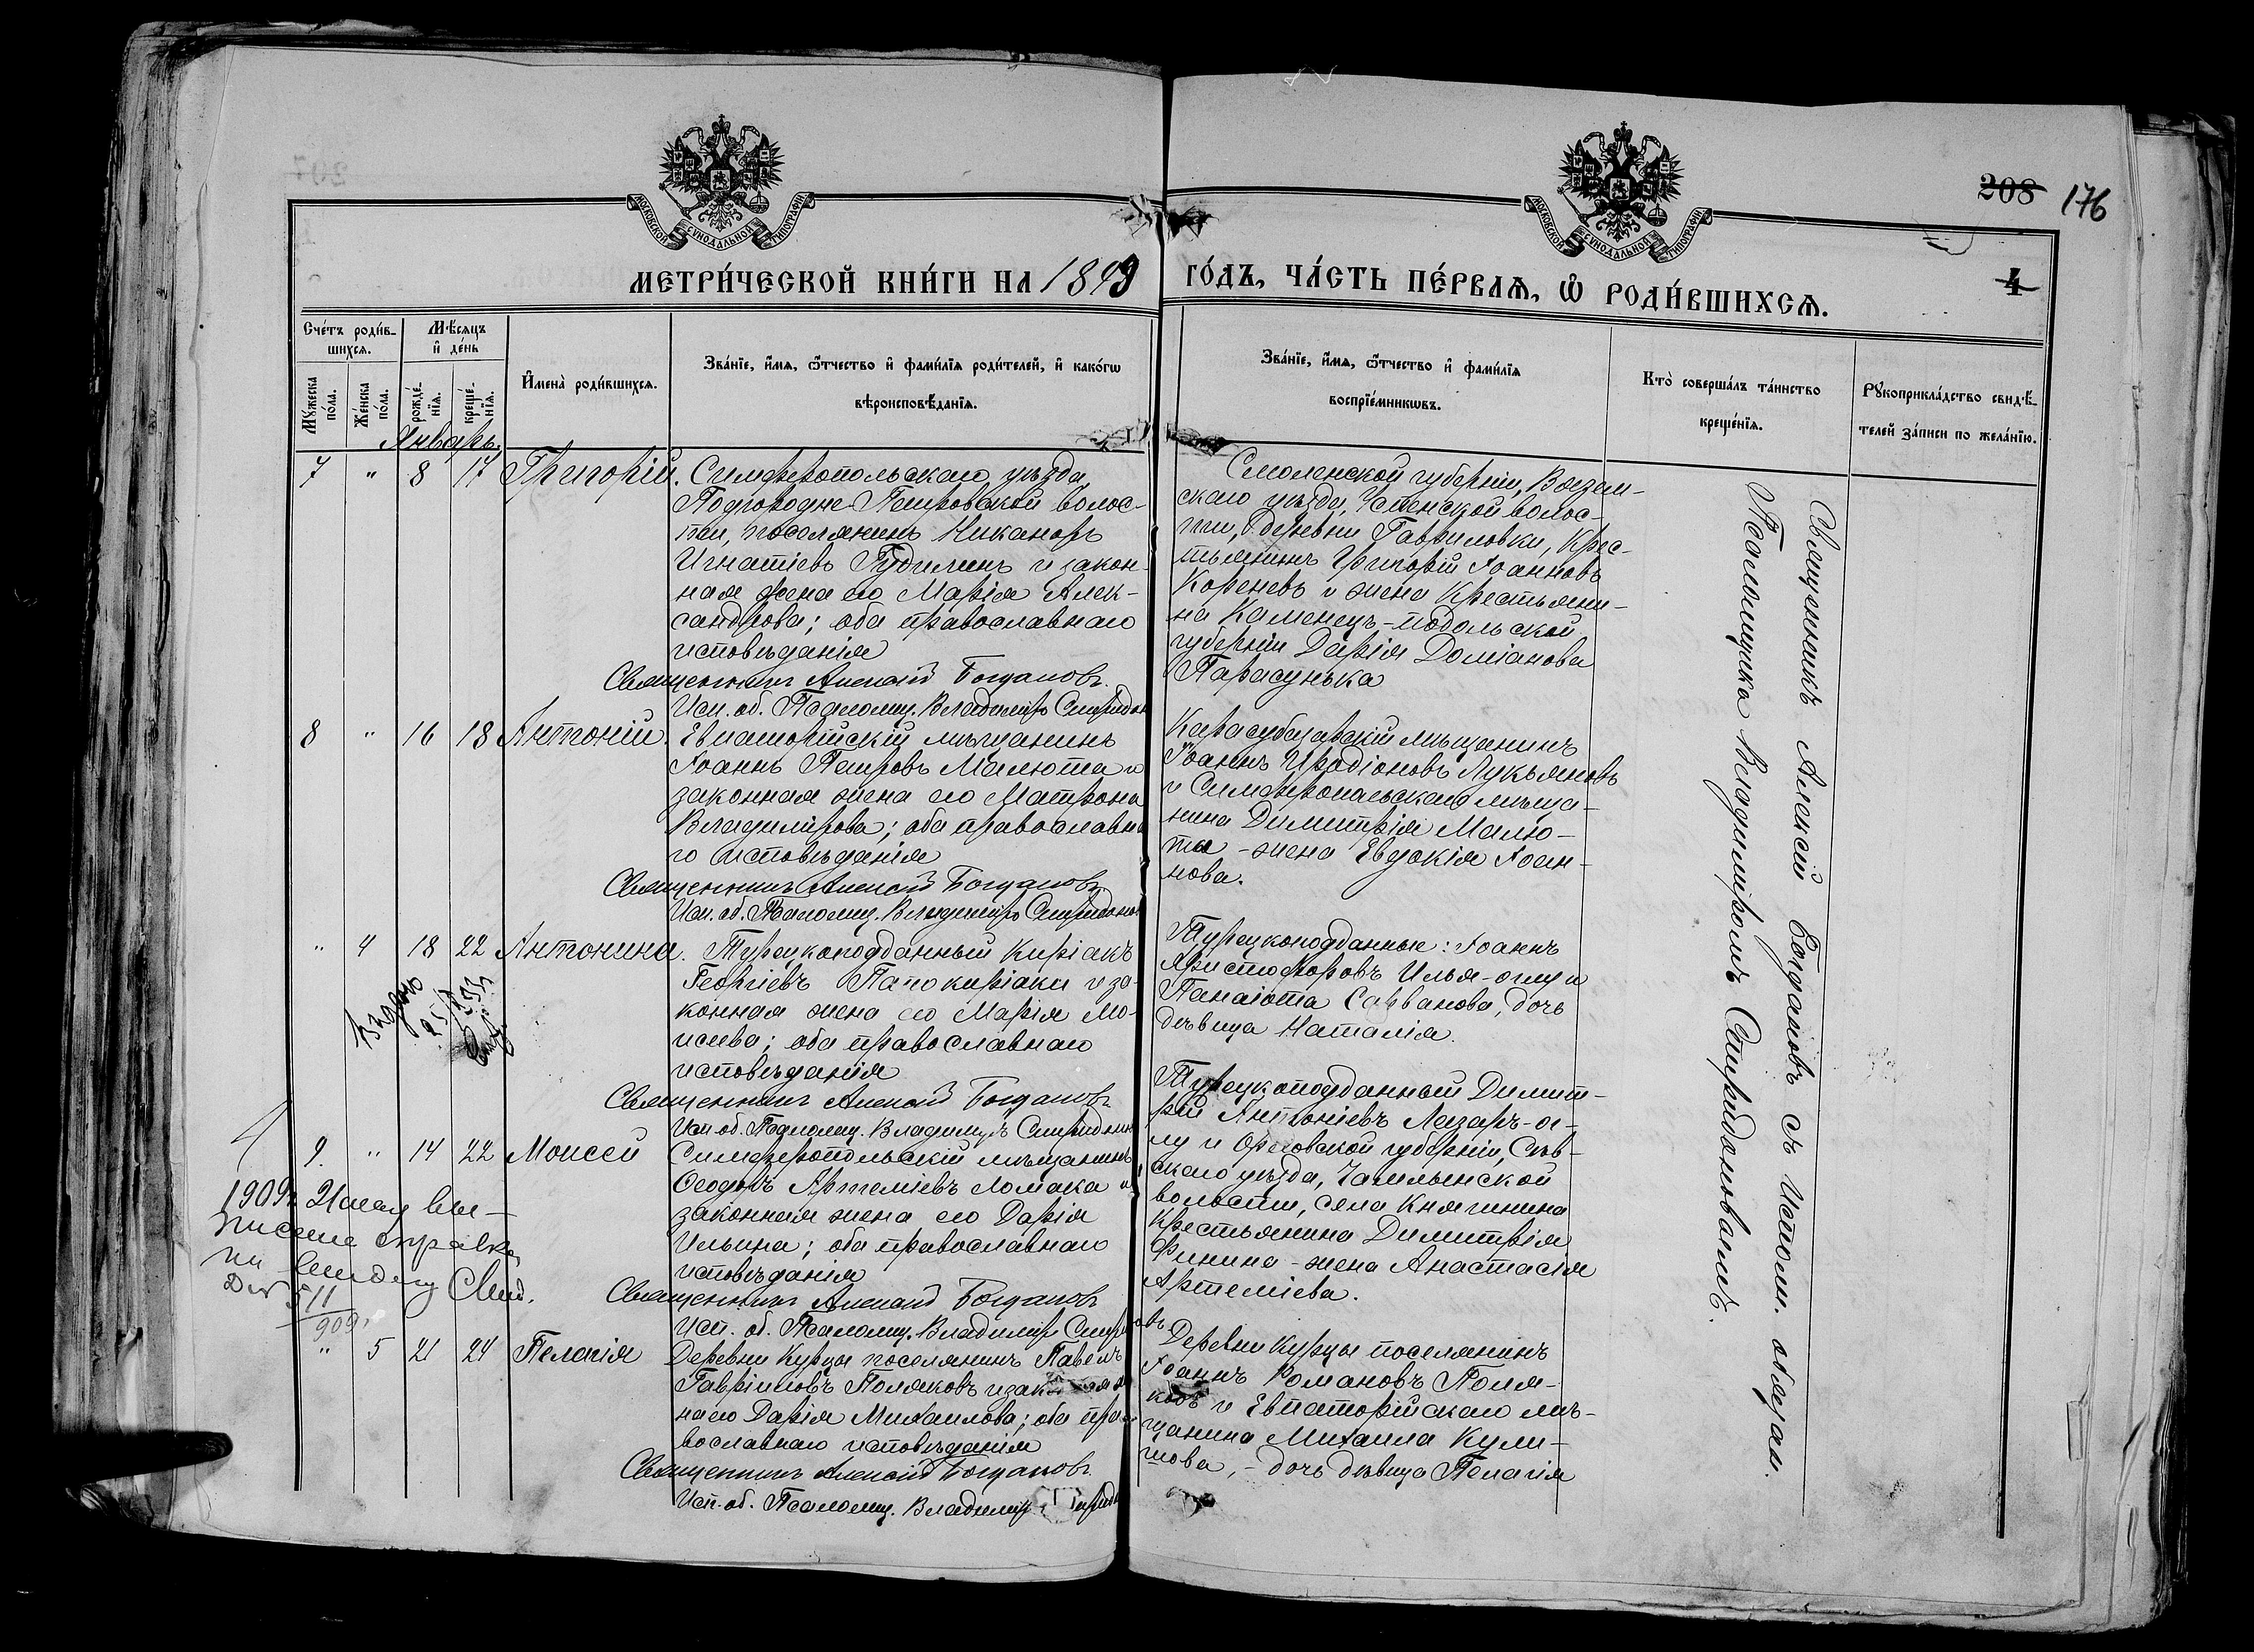 208 176
МОСКОВСКОЙ СѴНОДАЛЬНОЙ ТИПОГРАФІИ
МОСКОВСКОЙ СѴНОДАЛЬНОЙ ТИПОГРАФІИ
МЕТРИ́ЧЕСКОЙ КНИ́ГИ НА 1899
ГО́ДЪ, ЧА́СТЬ ПЕ́РВАѦ, Ѡ҆ РОДИ́ВШИХСѦ.
4
Сче́тъ роди́в-
шихсѧ.
Мꙋ́жеска по́ла.
Же́нска по́ла.
Мѣ́сѧцъ
и҆ де́нь
рожде́-
нїѧ.
креще́-
нїѧ.
И҆мена̀ роди́вшихсѧ.
Зва́нїе, и҆́мѧ, ѻ҆́тчество и҆ фами́лїѧ роди́телей, и҆ како́гѡ
вѣроисповѣ́данїѧ.
Зва́нїе, и҆́мѧ, ѻ҆́тчество и҆ фами́лїѧ
воспрїе́мникѡвъ.
Кто̀ соверша́лъ та́инство
креще́нїѧ.
Рꙋкоприкла́дство свидѣ́-
телей за́писи по жела́нїю.
Январь.
7 " 8 17 Григорій.
Симферопольскаго уѣзда,
Подгородне-Петровской волос-
ти, поселянинъ Никаноръ
Игнатіевъ Гудилинъ и закон-
ная жена его Марія Алек-
сандрова; оба православнаго
исповѣданія
Священникъ Алексій Богдановъ.
Исп. об. Псаломщ. Владиміръ Спиридон
Смоленской губерніи, Вязем-
скаго уѣзда, Успенской волос-
ти, деревни Гавриловки, Крес-
тьянинъ Григорій Іоанновъ
Кореневъ и жена Крестьяни-
на Каменецъ-Подольской
губерніи Дарія Доміанова
Парасунька
8 " 16 18 Антоній.
Евпаторійскій мѣщанинъ
Іоаннъ Петровъ Малюта и
законная жена его Матрона
Владимірова; оба православна
го исповѣданія
Священникъ Алексій Богдановъ
Исп. об. Псаломщ. Владиміръ Спиридонов
Карасубазарскій мѣщанинъ
Іоаннъ Иродіоновъ Лукьяновъ
и Симферопольскаго мѣща-
нина Димитрія Малю-
ты - жена Евдокія Іоан-
нова.
" 4 18 22 Антонина.
Турецкоподданный Киріакъ
Георгіевъ Папокиріаки и за-
конная жена его Марія Мо-
исеева; оба православнаго
исповѣданія
Священникъ Алексій Богдановъ
Исп. об. Псаломщ. Владиміръ Спиридонов
Турецкоподданные: Іоаннъ
Христофоровъ Илья-оглу и
Панаіота Савванова, дочь
дѣвица Наталія.
9. " 14 22 Моисей
Симферопольскій мѣщанинъ
Ѳеодоръ Артеміевъ Ломака и
законная жена его Дарія
Ильина; оба православнаго
исповѣданія
Священникъ Алексій Богдановъ
Исп. об. Псаломщ. Владиміръ Спиридоновъ
Турецкоподданный Димит-
рій Антоніевъ Лазаръ-ог-
лу и Орловской губерніи, Сѣв-
скаго уѣзда, Чамлыжской
волости, села Княгинина
Крестьянина Димитрія
Финина - жена Анастасія
Артеміева.
1909 г.
511
909 г.
" 5 21 24 Пелагія
Деревни Курцы поселянинъ Павелъ
Гавріиловъ Поляковъ и законная же
на его Дарія Михаилова; оба пра-
вославнаго исповѣданія
Священникъ Алексій Богдановъ
Исп. об. Псаломщ. Владиміръ
Деревни Курцы поселянинъ
Іоаннъ Романовъ Поля-
ковъ и Евпаторійскаго мѣ-
щанина Михаила Кули-
шова, - дочь дѣвица Пелагія
Священникъ Алексій Богдановъ съ Исполн. обязан.
Псаломщика Владиміромъ Спиридоновымъ.